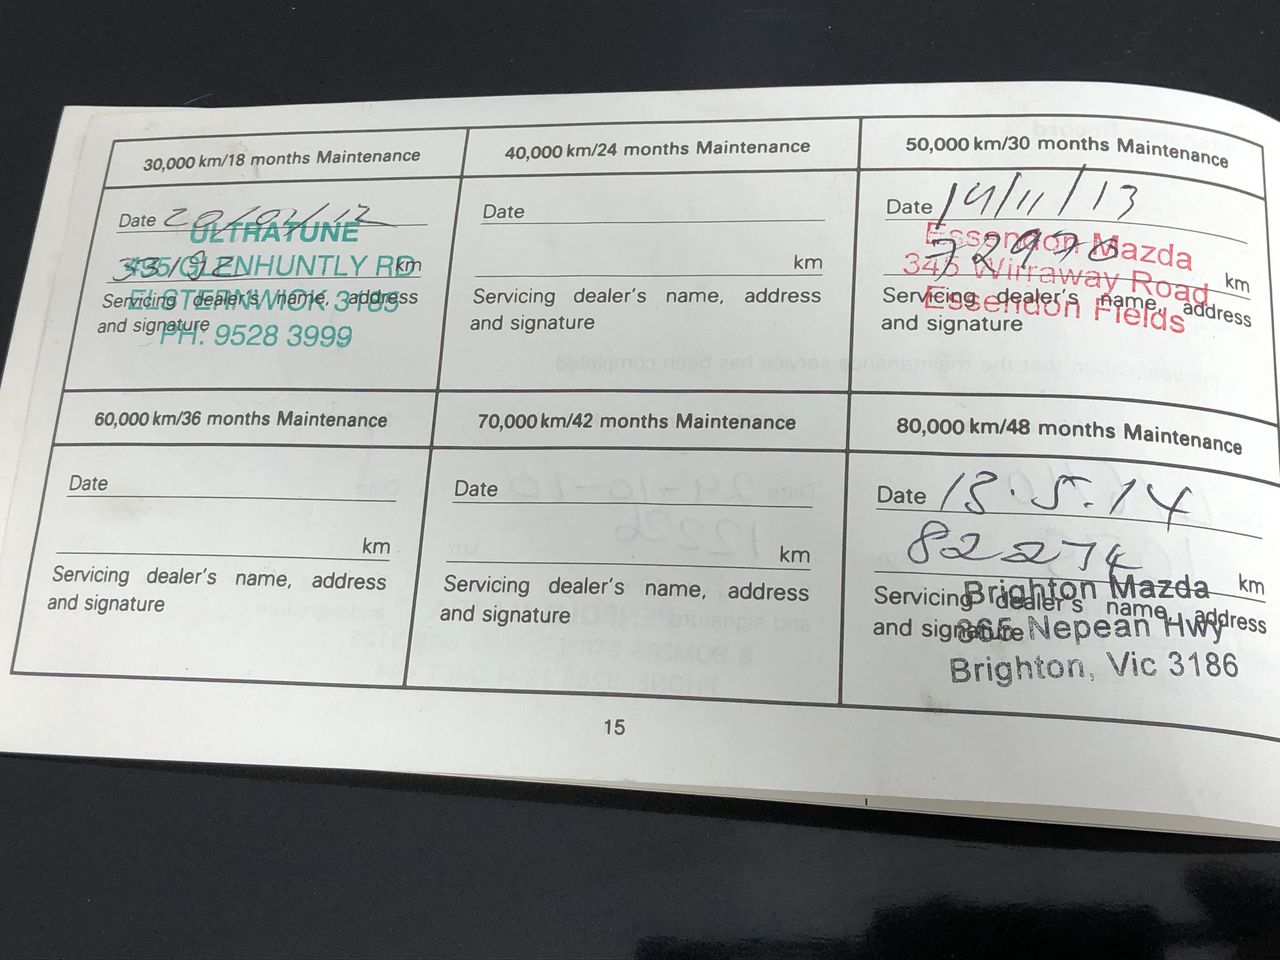 30,000 km/18 months Maintenance
Date 20/07/12
33192 km
Servicing dealer's name, address
and signature
ULTRATUNE
GLENHUNTLY RD
ELSTERNWICK 3185
PH: 9528 3999
40,000 km/24 months Maintenance
Date
km
Servicing dealer's name, address
and signature
50,000 km/30 months Maintenance
Date 14/11/13
72970 km
Servicing dealer's name, address
and signature
Essendon Mazda
345 Wirraway Road
Essendon Fields
60,000 km/36 months Maintenance
Date
km
Servicing dealer's name, address
and signature
70,000 km/42 months Maintenance
Date
km
Servicing dealer's name, address
and signature
80,000 km/48 months Maintenance
Date 13.5.14
82274 km
Servicing dealer's name, address
and signature
Brighton Mazda
Nepean Hwy
Brighton, Vic 3186
15